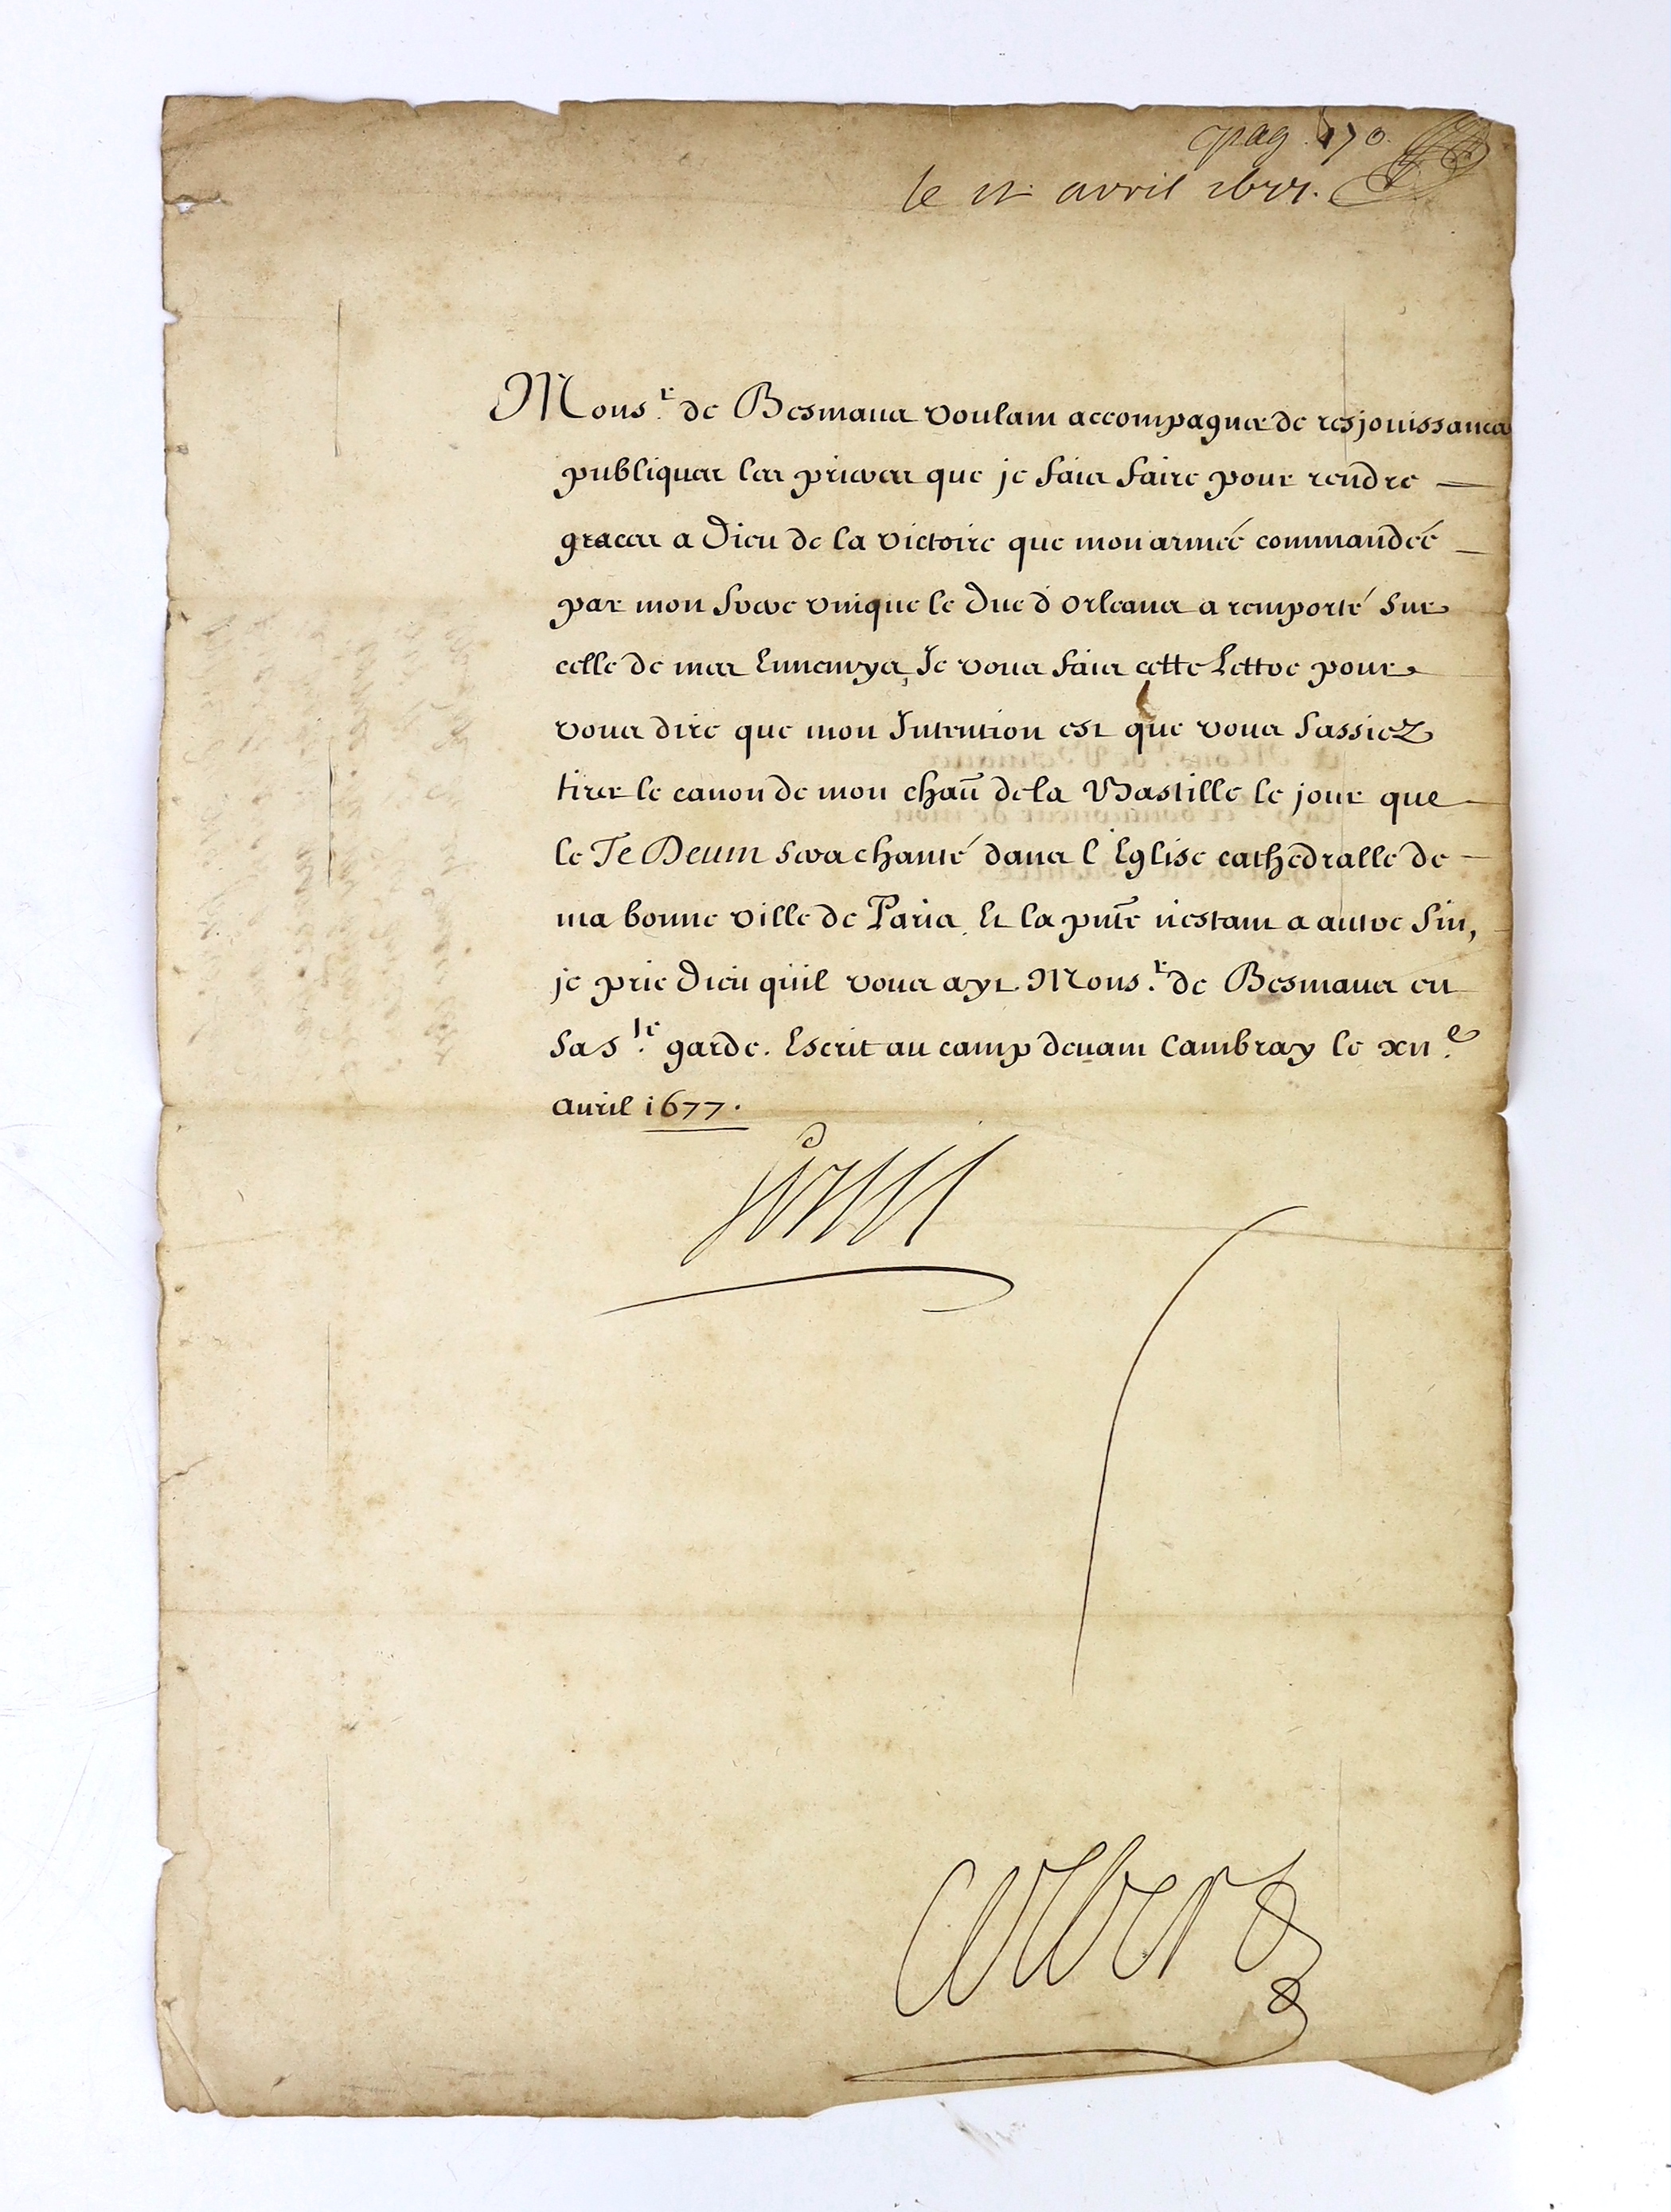 pag. 170.
le 12 avril 1677.
Mons.r de Besmaus voulant accompagner de resjouissances
publiques les prieres que je fais faire pour rendre
graces a Dieu de la victoire que mon armeé commandeé
par mon frere vnique le Duc d'Orleans a remporté sur
celle de mes Ennemys, Je vous fais cette Lettre pour
vous dire que mon Intention est que vous fassiez
tirer le canon de mon chāu de la Bastille le jour que
le Te Deum sera chanté dans l'Eglise cathedralle de
ma bonne ville de Paris. Et la pnte n'estant a autre fin,
je prie Dieu qu'il vous ayt Mons.r de Besmaus en
sa s.te garde. Escrit au camp deuant Cambray le xii.e
auril 1677.
Louis
Colbert